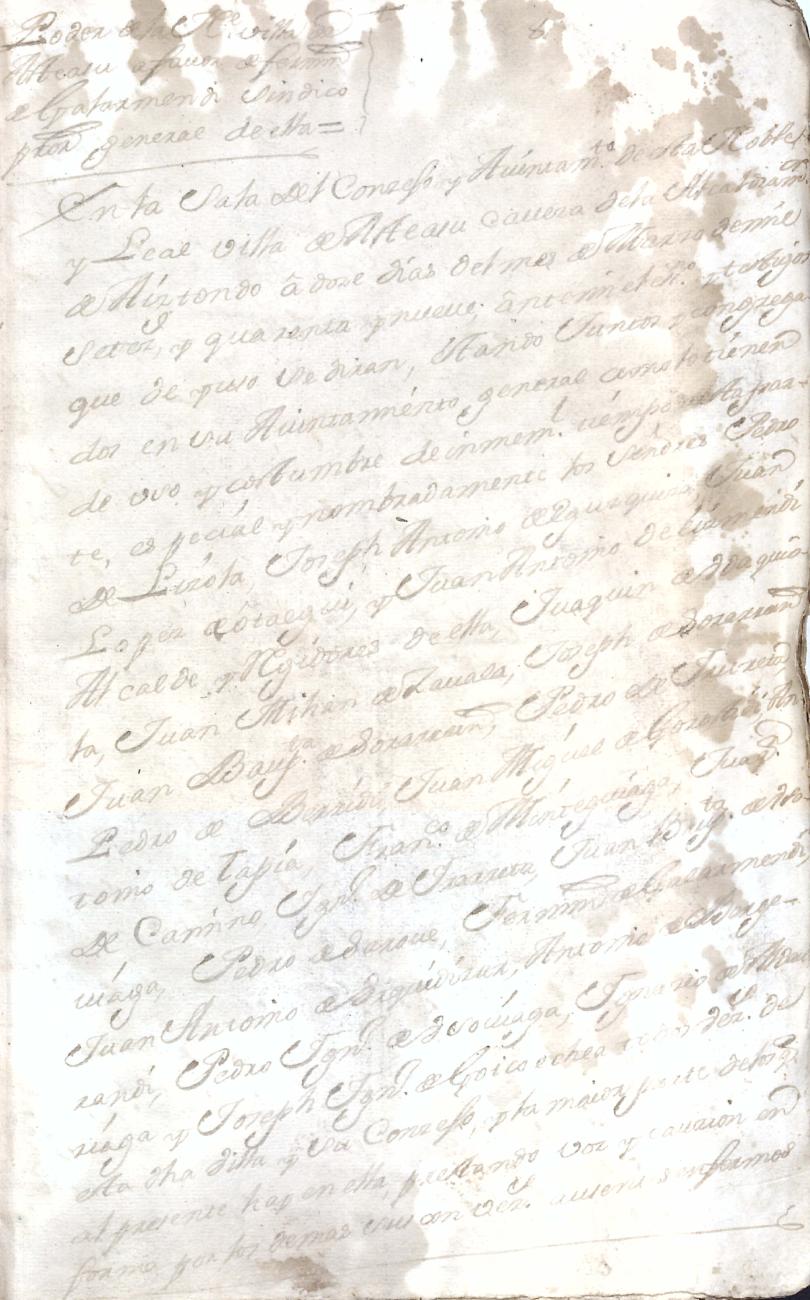 Poder de la N.e villa de
Alteasu a favor de fermin
de Galarmendi Sindico
pror general de ella =
En la Sala del Conzejo y Aiuntam.to de esta Noble
y Leal villa de Asteasu cavera de la Alcaldia m.or
de Aiztondo â doze dias del mes de Marzo de mil
setez.s y quarenta y nueve, ante mi el es.no y testigos
que de yuso se diran, estando Juntos y congrega
dos en su Aiuntamiento general como lo tienen
de uso y costumbre de inmem.l tiempo a esta par-
te, especial y nombradamente los Señores Pedro
de Lizola, Joseph Antonio de Eguzquiza, Juan
Lopez de Otaegui, y Juan Antonio de
Alcalde y Rejidores de ella, Juaquin de
ta, Juan Mihan de Zavala, Joseph de Sorarrain
Juan Baup.ta de Sorarrain, Pedro de Iturreta
Pedro de Juan Miguel de An
tonio de Tapia, Fran.co de Juan
de Camino, Ign.o de Irarreta, Juan Bap.ta de
uiaga, Pedro de Fermin de Galarmendi
Juan Antonio de Antonio de
randi, Pedro Ign.o de Ignacio de
riaga y Joseph Ign.o de Goicoechea todos vez.s de
esta dha villa y su Conzejo, y la maior parte de los q.e
al presente hay en ella, prestando voz y caucion en
forma por los demas sus con vez.s ausentes enfermos